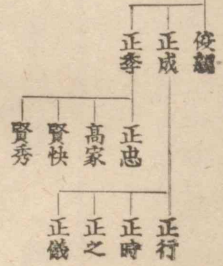 正成
正季
正忠
高家
賢快
賢秀
正行
正時
正之
正儀